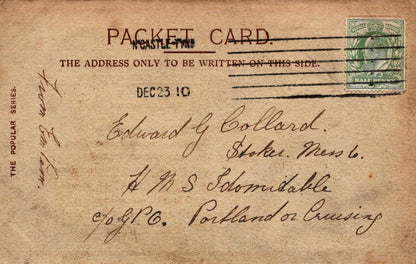 PACKET CARD.
N'CASTLE-TYNE
THE ADDRESS ONLY TO BE WRITTEN ON THIS SIDE.
DEC 23 10
HALF PENNY
THE POPULAR SERIES.
From
Edward G Collard.
Stoker. Mess 6.
H M S Idomitable
c/o G.P.O. Portland or Cruising